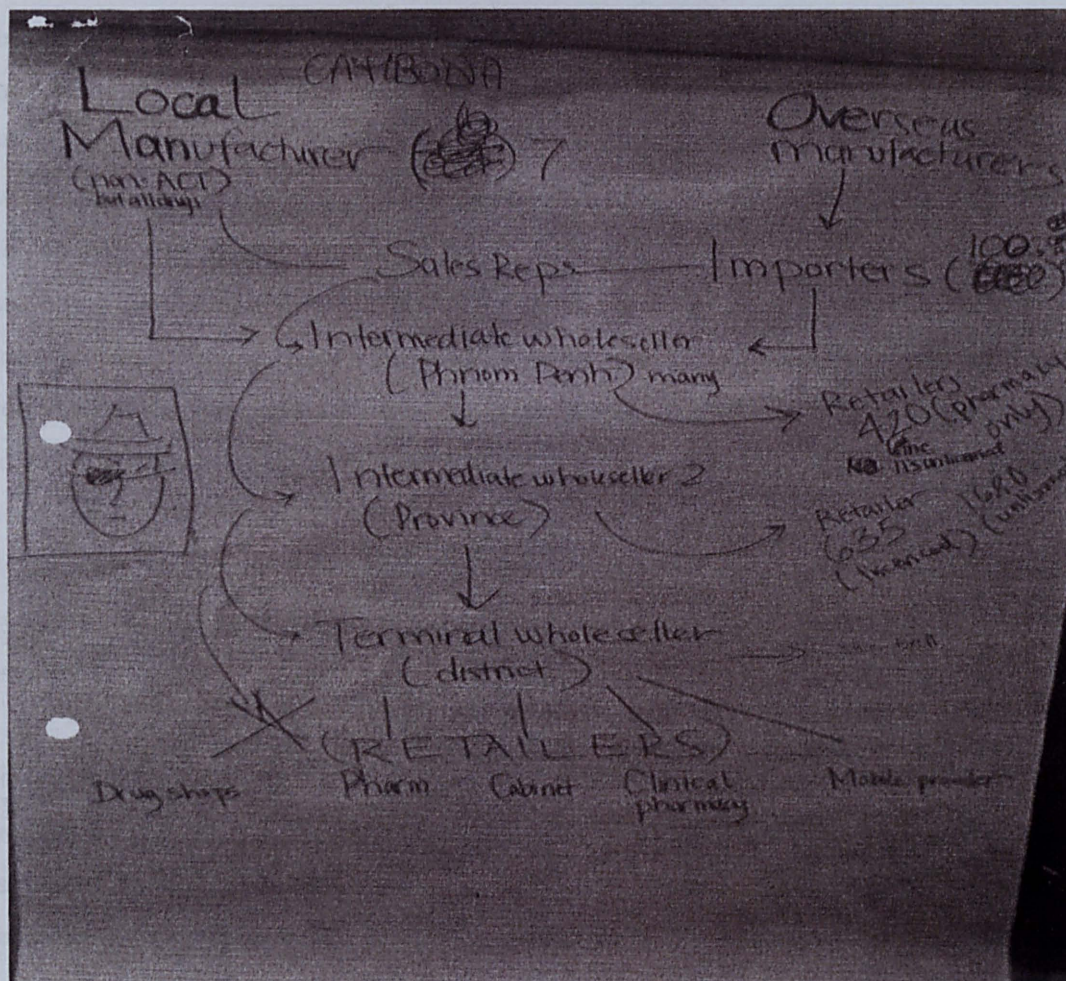 Local
Manufacturer ( ) 7
(non-ACT)
but all drugs
Overseas
manufacturers
Sales Reps
Importers (
100
Intermediate wholeseller
(Phnom Penh) many
Retailers
420 (pharmacy
only)
Intermediate wholeseller 2
(Province)
Retailer
635 1680
(licenced)
Terminal wholeseller
(district)
(RETAILERS)
Drug shops
Pharm
Cabinet
Clinical
pharmacy
Mobile provider